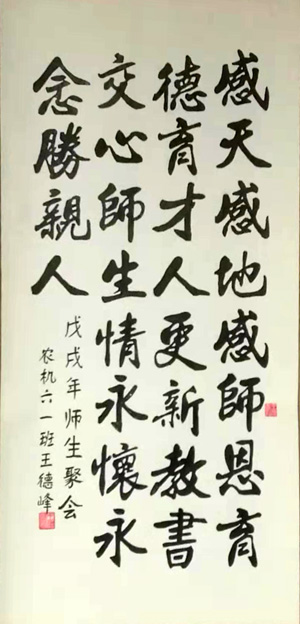 感天感地感師恩育
德育才人更新教書
交心師生情永懷永
念勝親人
戊戌年师生聚会
农机六一班王德峰